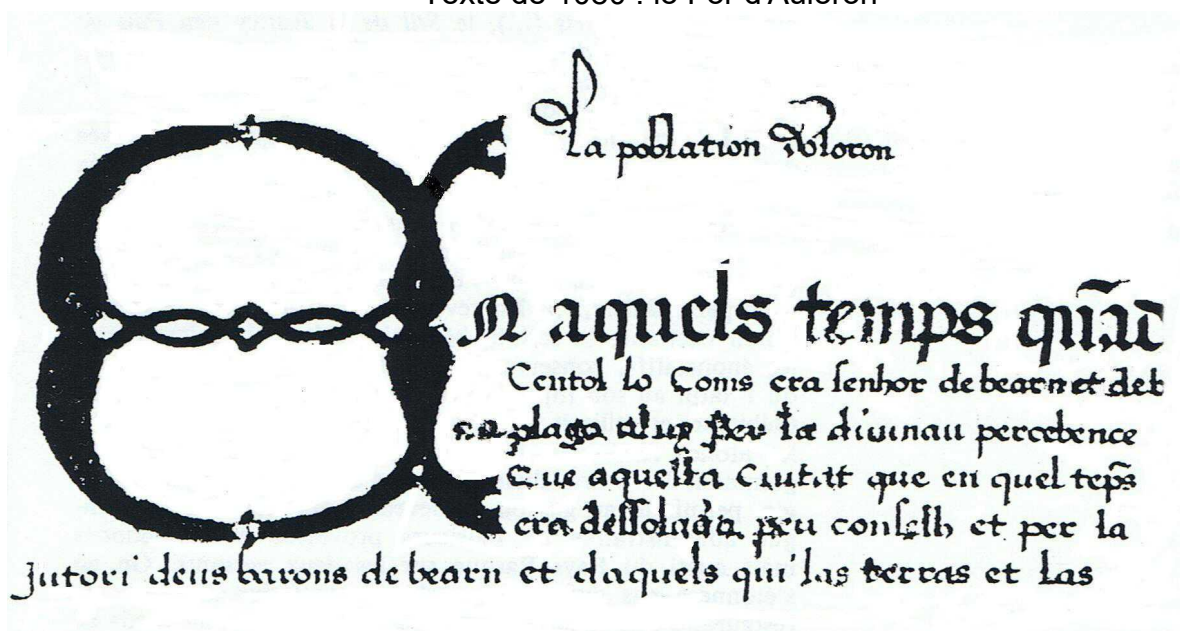 Texte de 1080 : le For d'Auloron
La poblation Doloron
En aquels temps quāt
Centol lo Coms era senhor de bearn et deb
plago a luy Per la diuinau percebence
Que aquesta Ciutat que en quel tēps
era dessolada peu conselh et per la
Jutori deus barons de bearn et daquels qui las terras et las